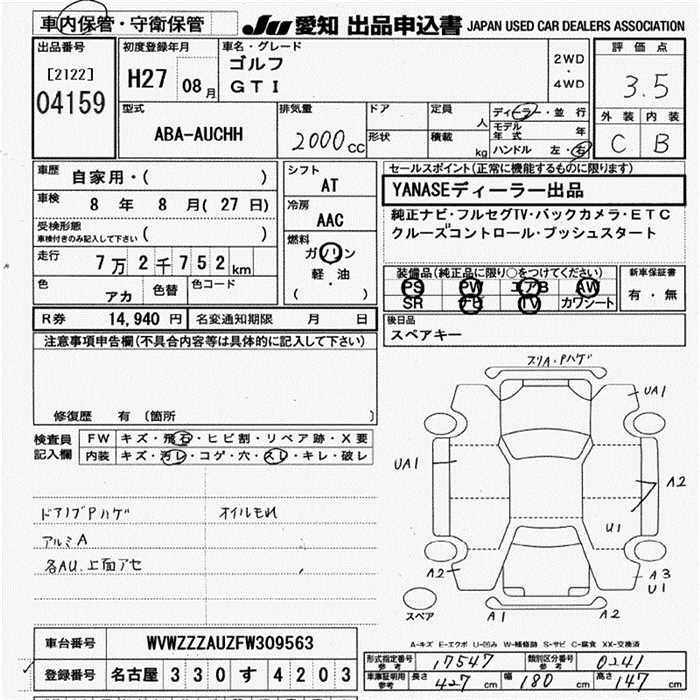 車内保管・守衛保管
JU 愛知 出品申込書 JAPAN USED CAR DEALERS ASSOCIATION
出品番号
[2122]
04159
初度登録年月
H27 08月
車名・グレード
ゴルフ
GTI
2WD
・
4WD
評価点
3.5
外装 内装
C B
型式
ABA-AUCHH
排気量
2000cc
ドア
形状
定員 人
積載 kg
ディーラー・並行
モデル年式 年
ハンドル 左・右
車歴
自家用・( )
車検
8年 8月(27日)
受検形態
車検付きのみ記入して下さい ( )
走行
7万2千752km
色
アカ
色替
色コード
シフト
AT
冷房
AAC
燃料
ガソリン
軽・油
( )
セールスポイント(正常に機能するものに限ります)
YANASEディーラー出品
純正ナビ・フルセグTV・バックカメラ・ETC
クルーズコントロール・プッシュスタート
装備品(純正品に限り○をつけてください)
PS PW エアB AW
SR ナビ TV カワシート
新車保証書
有・無
R券 14,940円
名変通知期限 月 日
後日品
スペアキー
注意事項申告欄(不具合内容等は具体的に記入して下さい)
修復歴 有〔箇所 〕
検査員
記入欄
FW キズ・飛石・ヒビ割・リペア跡・X要
内装 キズ・汚レ・コゲ・穴・スレ・キレ・破レ
ドアノブPハゲ
オイルモレ
アルミA
各AU.上面アセ
スリA・Pハゲ
UA1
UA1
A2
U1
A2
A3
U1
スペア
A1
A2
A-キズ E-エクボ U-凹み W-補修跡 S-サビ C-腐食 XX-交換済
車台番号 WVWZZZAUZFW309563
登録番号 名古屋 330 す 4203
形式指定番号 参考 17547
類別区分番号 参考 0241
車庫証明用 参考 長さ 427cm 幅 180cm 高さ 147cm